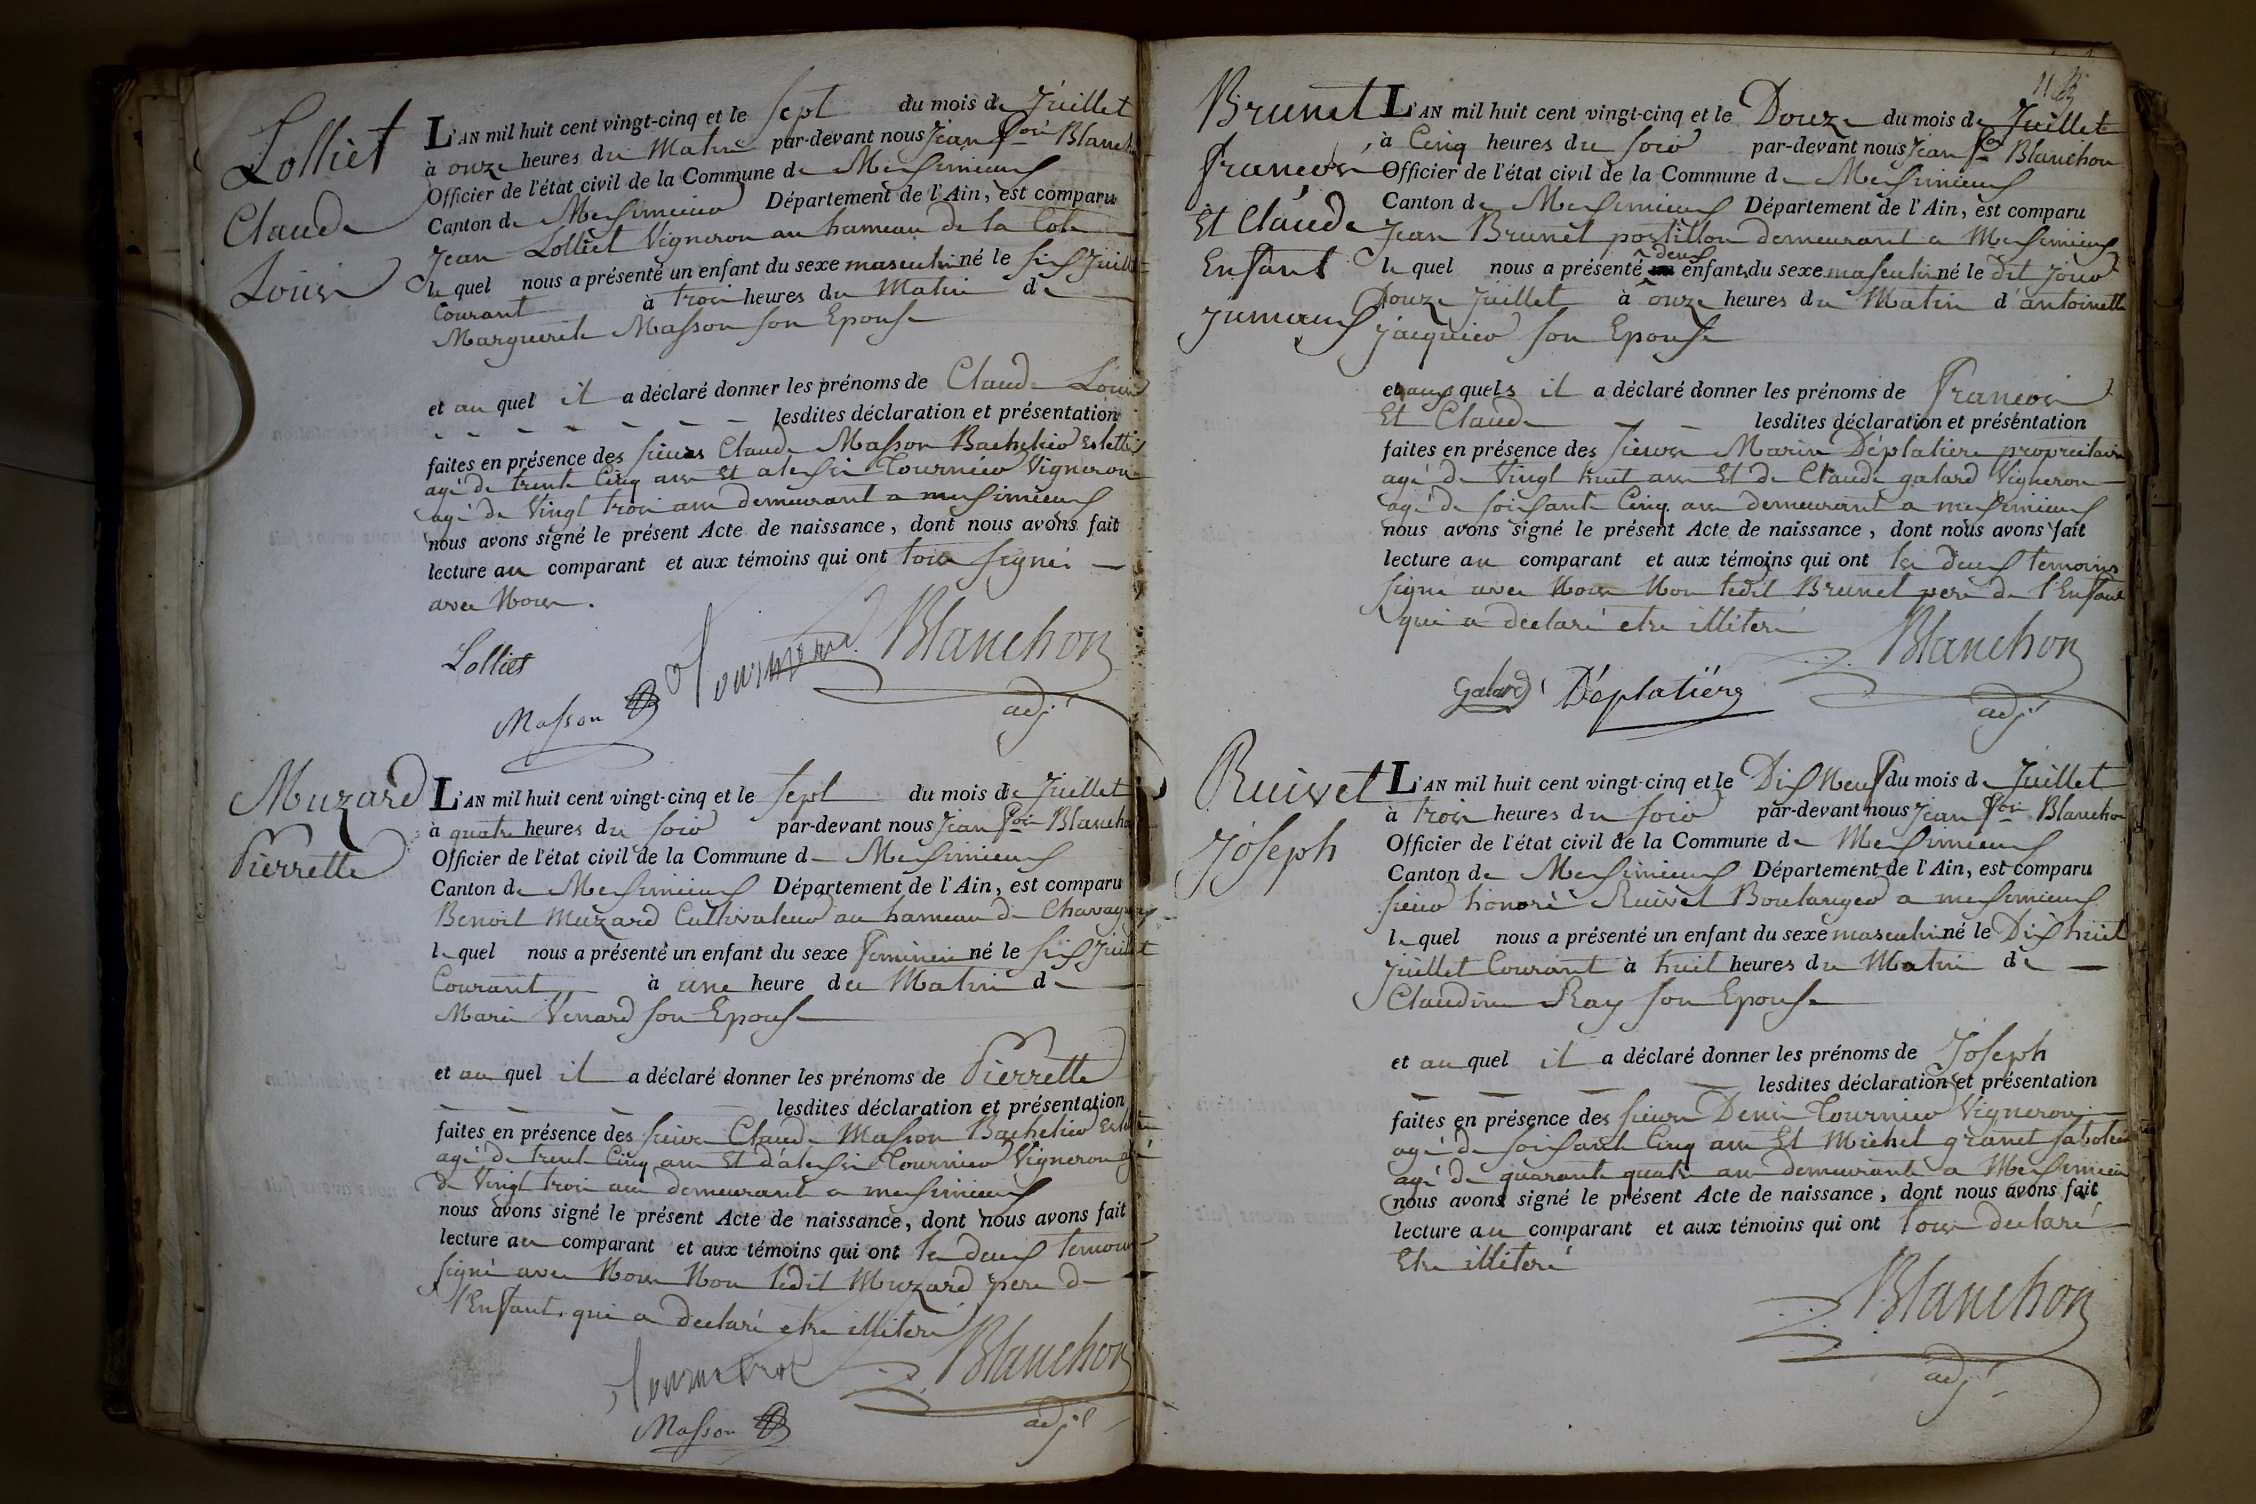 Lolliet
Claude
Louis
L'AN mil huit cent vingt-cinq et le sept du mois de Juillet
à onze heures du Matin par-devant nous Jean fois Blanchon
Officier de l'état civil de la Commune de Messimieux
Canton de Messimieux Département de l'Ain, est comparu
Jean Lolliet Vigneron au hameau de la Cote
le quel nous a présenté un enfant du sexe masculin né le six Juillet
Courant à trois heures du Matin de
Marguerite Masson son Epouse
et au quel il a déclaré donner les prénoms de Claude Louis
lesdites déclaration et présentation
faites en présence des sieurs Claude Masson Bachelier Es lettres
agé de trente Cinq ans Et alexis Tournier Vigneron
agé de Vingt trois ans demeurant a messimieux
nous avons signé le présent Acte de naissance, dont nous avons fait
lecture au comparant et aux témoins qui ont tous signé
avec Nous.
Lolliet
Masson
Blanchon
adjt
Muzard
Pierrette
L'AN mil huit cent vingt-cinq et le sept du mois de Juillet
à quatre heures du soir par-devant nous Jean fois Blanchon
Officier de l'état civil de la Commune de Messimieux
Canton de Messimieux Département de l'Ain, est comparu
Benoit Muzard Cultivateur au hameau de Chavagneux
le quel nous a présenté un enfant du sexe feminin né le six Juillet
Courant à une heure du Matin de
Marie Venard son Epouse
et au quel il a déclaré donner les prénoms de Pierrette
lesdites déclaration et présentation
faites en présence des sieurs Claude Masson Bachelier Es lettres
agé de trente Cinq ans Et d'alexis Tournier Vigneron agé
de Vingt trois ans demeurant a messimieux
nous avons signé le présent Acte de naissance, dont nous avons fait
lecture au comparant et aux témoins qui ont les deux temoins
signé avec Nous Non ledit Muzard pere de
l'Enfant qui a declaré etre illiteré
Blanchon
adjt
Masson
Brunet
francois
Et Claude
Enfant
jumeaux
L'AN mil huit cent vingt-cinq et le Douze du mois de Juillet
à Cinq heures du soir par-devant nous Jean fois Blanchon
Officier de l'état civil de la Commune de Messimieux
Canton de Messimieux Département de l'Ain, est comparu
Jean Brunet postillon demeurant a Messimieux
le quel nous a présenté deux enfants du sexe masculin né le dit jour
Douze Juillet à onze heures du Matin d'antoinette
jacquier son Epouse
et aux quels il a déclaré donner les prénoms de francois
Et Claude lesdites déclaration et présentation
faites en présence des sieurs Marin Déplatiere propriétaire
agé de Vingt huit ans Et de Claude galard Vigneron
agé de soixante Cinq ans demeurant a messimieux
nous avons signé le présent Acte de naissance, dont nous avons fait
lecture au comparant et aux témoins qui ont les deux temoins
signé avec Nous Non ledit Brunet pere de l'Enfant
qui a declaré etre illiteré
Blanchon
adjt
Galard Déplatière
Ruivet
Joseph
L'AN mil huit cent vingt-cinq et le Dix Neuf du mois de Juillet
à trois heures du soir par-devant nous Jean fois Blanchon
Officier de l'état civil de la Commune de Messimieux
Canton de Messimieux Département de l'Ain, est comparu
sieur honoré Ruivet Boulanger a messimieux
le quel nous a présenté un enfant du sexe masculin né le Dix huit
Juillet Courant à huit heures du Matin de
Claudine Ray son Epouse
et au quel il a déclaré donner les prénoms de Joseph
lesdites déclaration et présentation
faites en présence des sieurs Denis Tournier Vigneron
agé de soixante Cinq ans Et Michel granet sabotier
agé de quarante quatre ans demeurant a Messimieux
nous avons signé le présent Acte de naissance, dont nous avons fait
lecture au comparant et aux témoins qui ont tous declaré
Etre illiteré
Blanchon
adjt